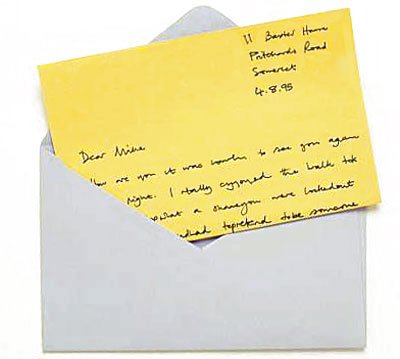 11 Baxter House
Pritchards Road
Somerset
4.8.95
Dear Mike
How are you it was lovely to see you again
night. I really enjoyed the
what a shame you were locked out
had to pretend to be someone